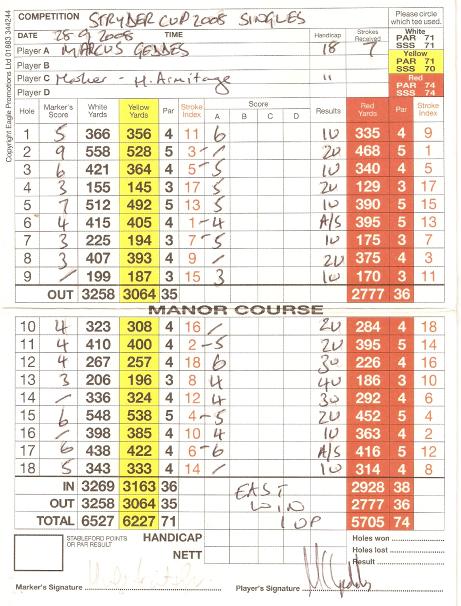 COMPETITION STRYDER CUP 2008 SINGLES Please circle which tee used.
DATE 28-9-2008 TIME Handicap Strokes Received White PAR 71 SSS 71
Player A MARCUS GEDDES 18 7 Yellow PAR 71 SSS 70
Player B
Player C Marker - H. Armitage 11 Red PAR 74 SSS 74
Player D
Copyright Eagle Promotions Ltd 01883 344244
Hole Marker's Score White Yards Yellow Yards Par Stroke Index Score A B C D Results Red Yards Par Stroke Index
1 5 366 356 4 11 6 1U 335 4 9
2 9 558 528 5 3 - / 2U 468 5 1
3 6 421 364 4 5 - 5 1U 340 4 5
4 3 155 145 3 17 5 2U 129 3 17
5 7 512 492 5 13 5 1U 390 5 15
6 4 415 405 4 1 - 4 A/S 395 5 13
7 3 225 194 3 7 - 5 1U 175 3 7
8 3 407 393 4 9 / 2U 375 4 3
9 / 199 187 3 15 3 1U 170 3 11
OUT 3258 3064 35 2777 36
MANOR COURSE
10 4 323 308 4 16 / 2U 284 4 18
11 4 410 400 4 2 - 5 2U 395 5 14
12 4 267 257 4 18 6 3U 226 4 16
13 3 206 196 3 8 4 4U 186 3 10
14 / 336 324 4 12 4 3U 292 4 6
15 6 548 538 5 4 - 5 2U 452 5 4
16 / 398 385 4 10 4 1U 363 4 2
17 6 438 422 4 6 - 6 A/S 416 5 12
18 5 343 333 4 14 / 1U 314 4 8
IN 3269 3163 36 EAST 2928 38
OUT 3258 3064 35 WIN 2777 36
TOTAL 6527 6227 71 1 UP 5705 74
STABLEFORD POINTS OR PAR RESULT HANDICAP Holes won
NETT Holes lost
Result
Marker's Signature Player's Signature MGeddes